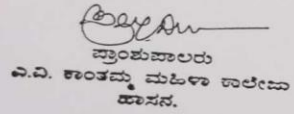 ಪ್ರಾಂಶುಪಾಲರು
ಎ.ವಿ. ಕಾಂತಮ್ಮ ಮಹಿಳಾ ಕಾಲೇಜು
ಹಾಸನ.